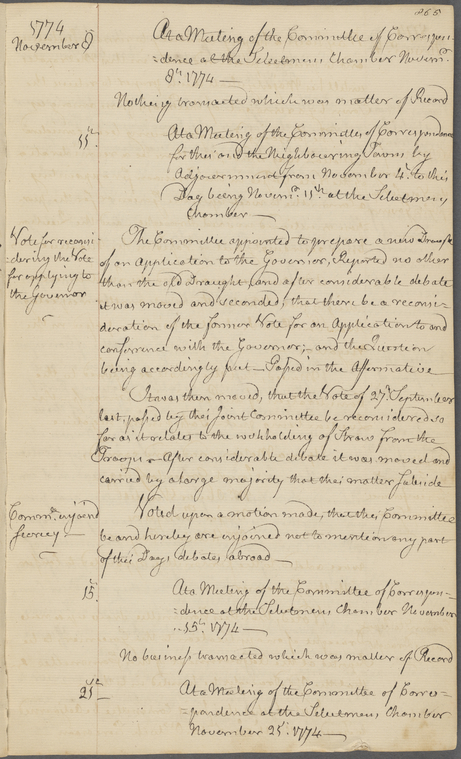 265
1774
November 8
At a Meeting of the Committee of Correspon-
=dence at the Selectmens Chamber Novemr.
8th. 1774 —
Nothing transacted which was matter of Record
11th.
At a Meeting of the Committees of Correspondence
for this and the Neighbouring Towns by
Adjournment from November 4th. to this
Day being Novemr. 11th at the Selectmens
Chamber —
Vote for reconsi-
-dering the Vote
for applying to
the Governor
The Committee appointed to prepare a new Draught
of an Application to the Governor, Reported no other
than the old Draught (and after considerable debate
it was moved and seconded, that there be a reconsi-
deration of the former Vote for an Application to and
conferrence with the Governor; — and the Question
being accordingly put — Passed in the Affirmative
It was then moved, that the Vote of 27th. September
last, passed by this Joint Committee be reconsidered so
far as it relates to the withholding of Straw from the
Troops — After considerable debate it was moved and
carried by a large majority that this matter subside
Commee. injoined
Secrecy
Voted upon a motion made, that this Committee
be and hereby are injoined not to mention any part
of this Days debates abroad —
15.
At a Meeting of the Committee of Correspon-
=dence at the Selectmens Chamber November
15th. 1774 —
No business transacted which was matter of Record
25th
At a Meeting of the Committee of Corres-
=pondence at the Selectmens Chamber
November 25th. 1774 —